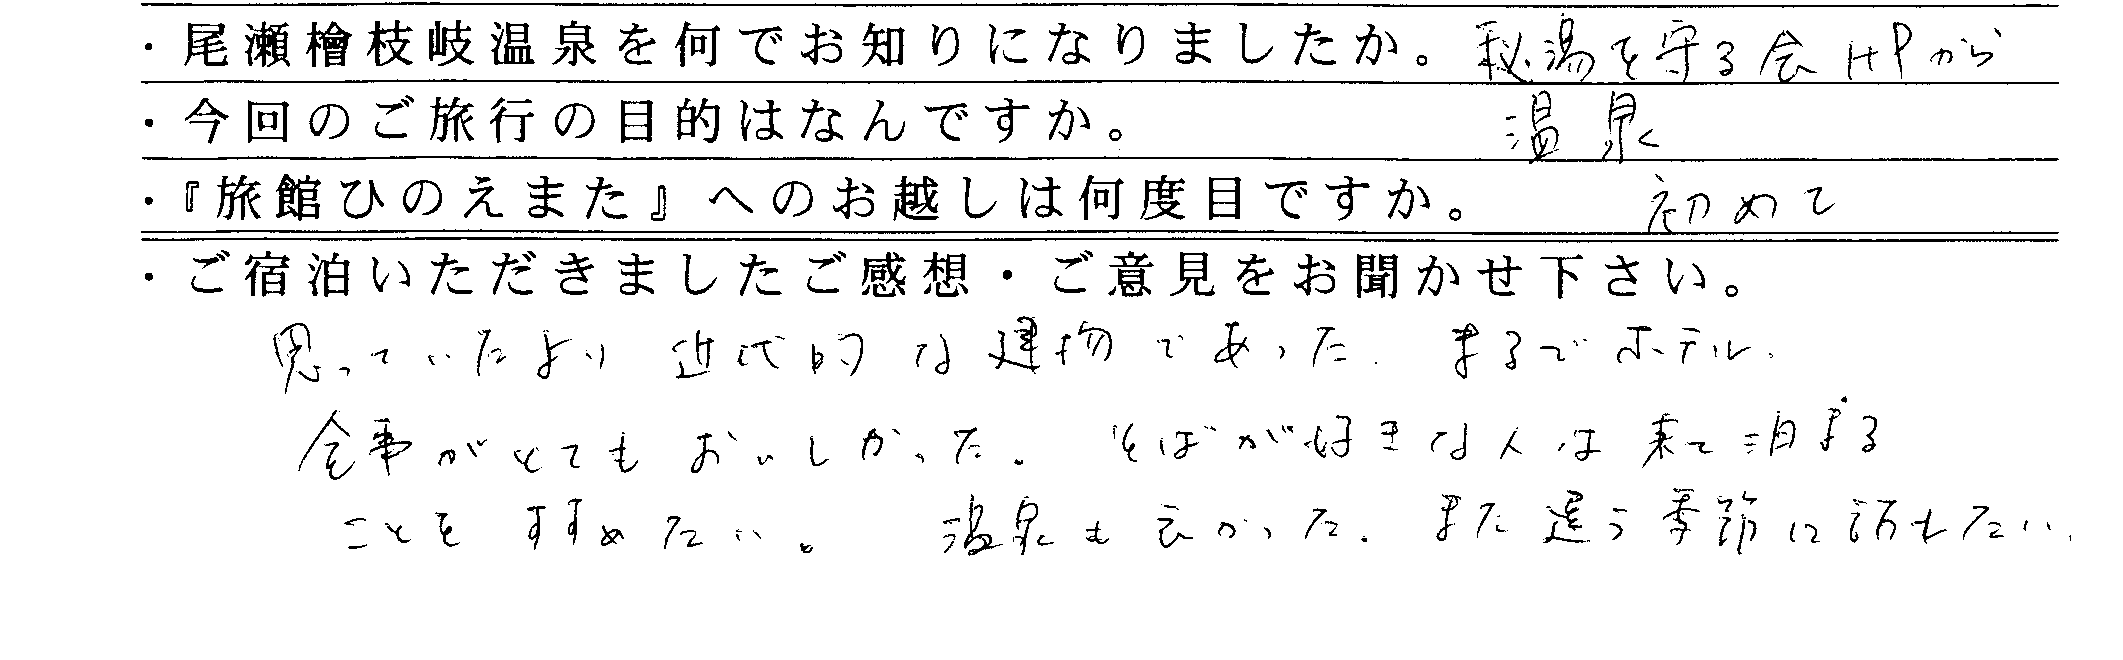 ・尾瀬檜枝岐温泉を何でお知りになりましたか。秘湯を守る会HPから
・今回のご旅行の目的はなんですか。温泉
・『旅館ひのえまた』へのお越しは何度目ですか。初めて
・ご宿泊いただきましたご感想・ご意見をお聞かせ下さい。
思っていたより近代的な建物であった。まるでホテル。
食事がとてもおいしかった。そばが好きな人は来て泊まる
ことをすすめたい。温泉も良かった。また違う季節に訪れたい。